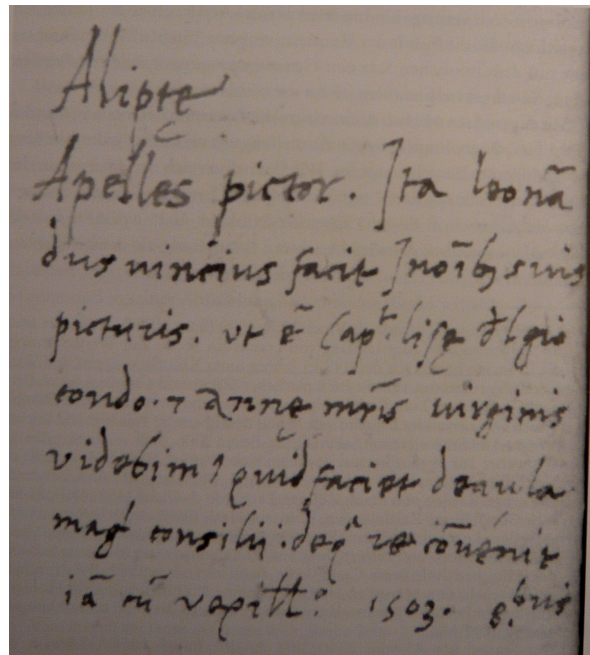 Aliptę
Apelles pictor. Ita Leonar
dus uincius facit in oībꝫ suis
picturis. vt ē Capᵗ. liſę dl gio
condo. ⁊ Annę mr̄is uirginis
videbimꝰ quid faciet de aula
magͥ consilii. de qᵃ re cōuenit
iā cū vexillͦ. 1503. 8.ᵇʳⁱˢ